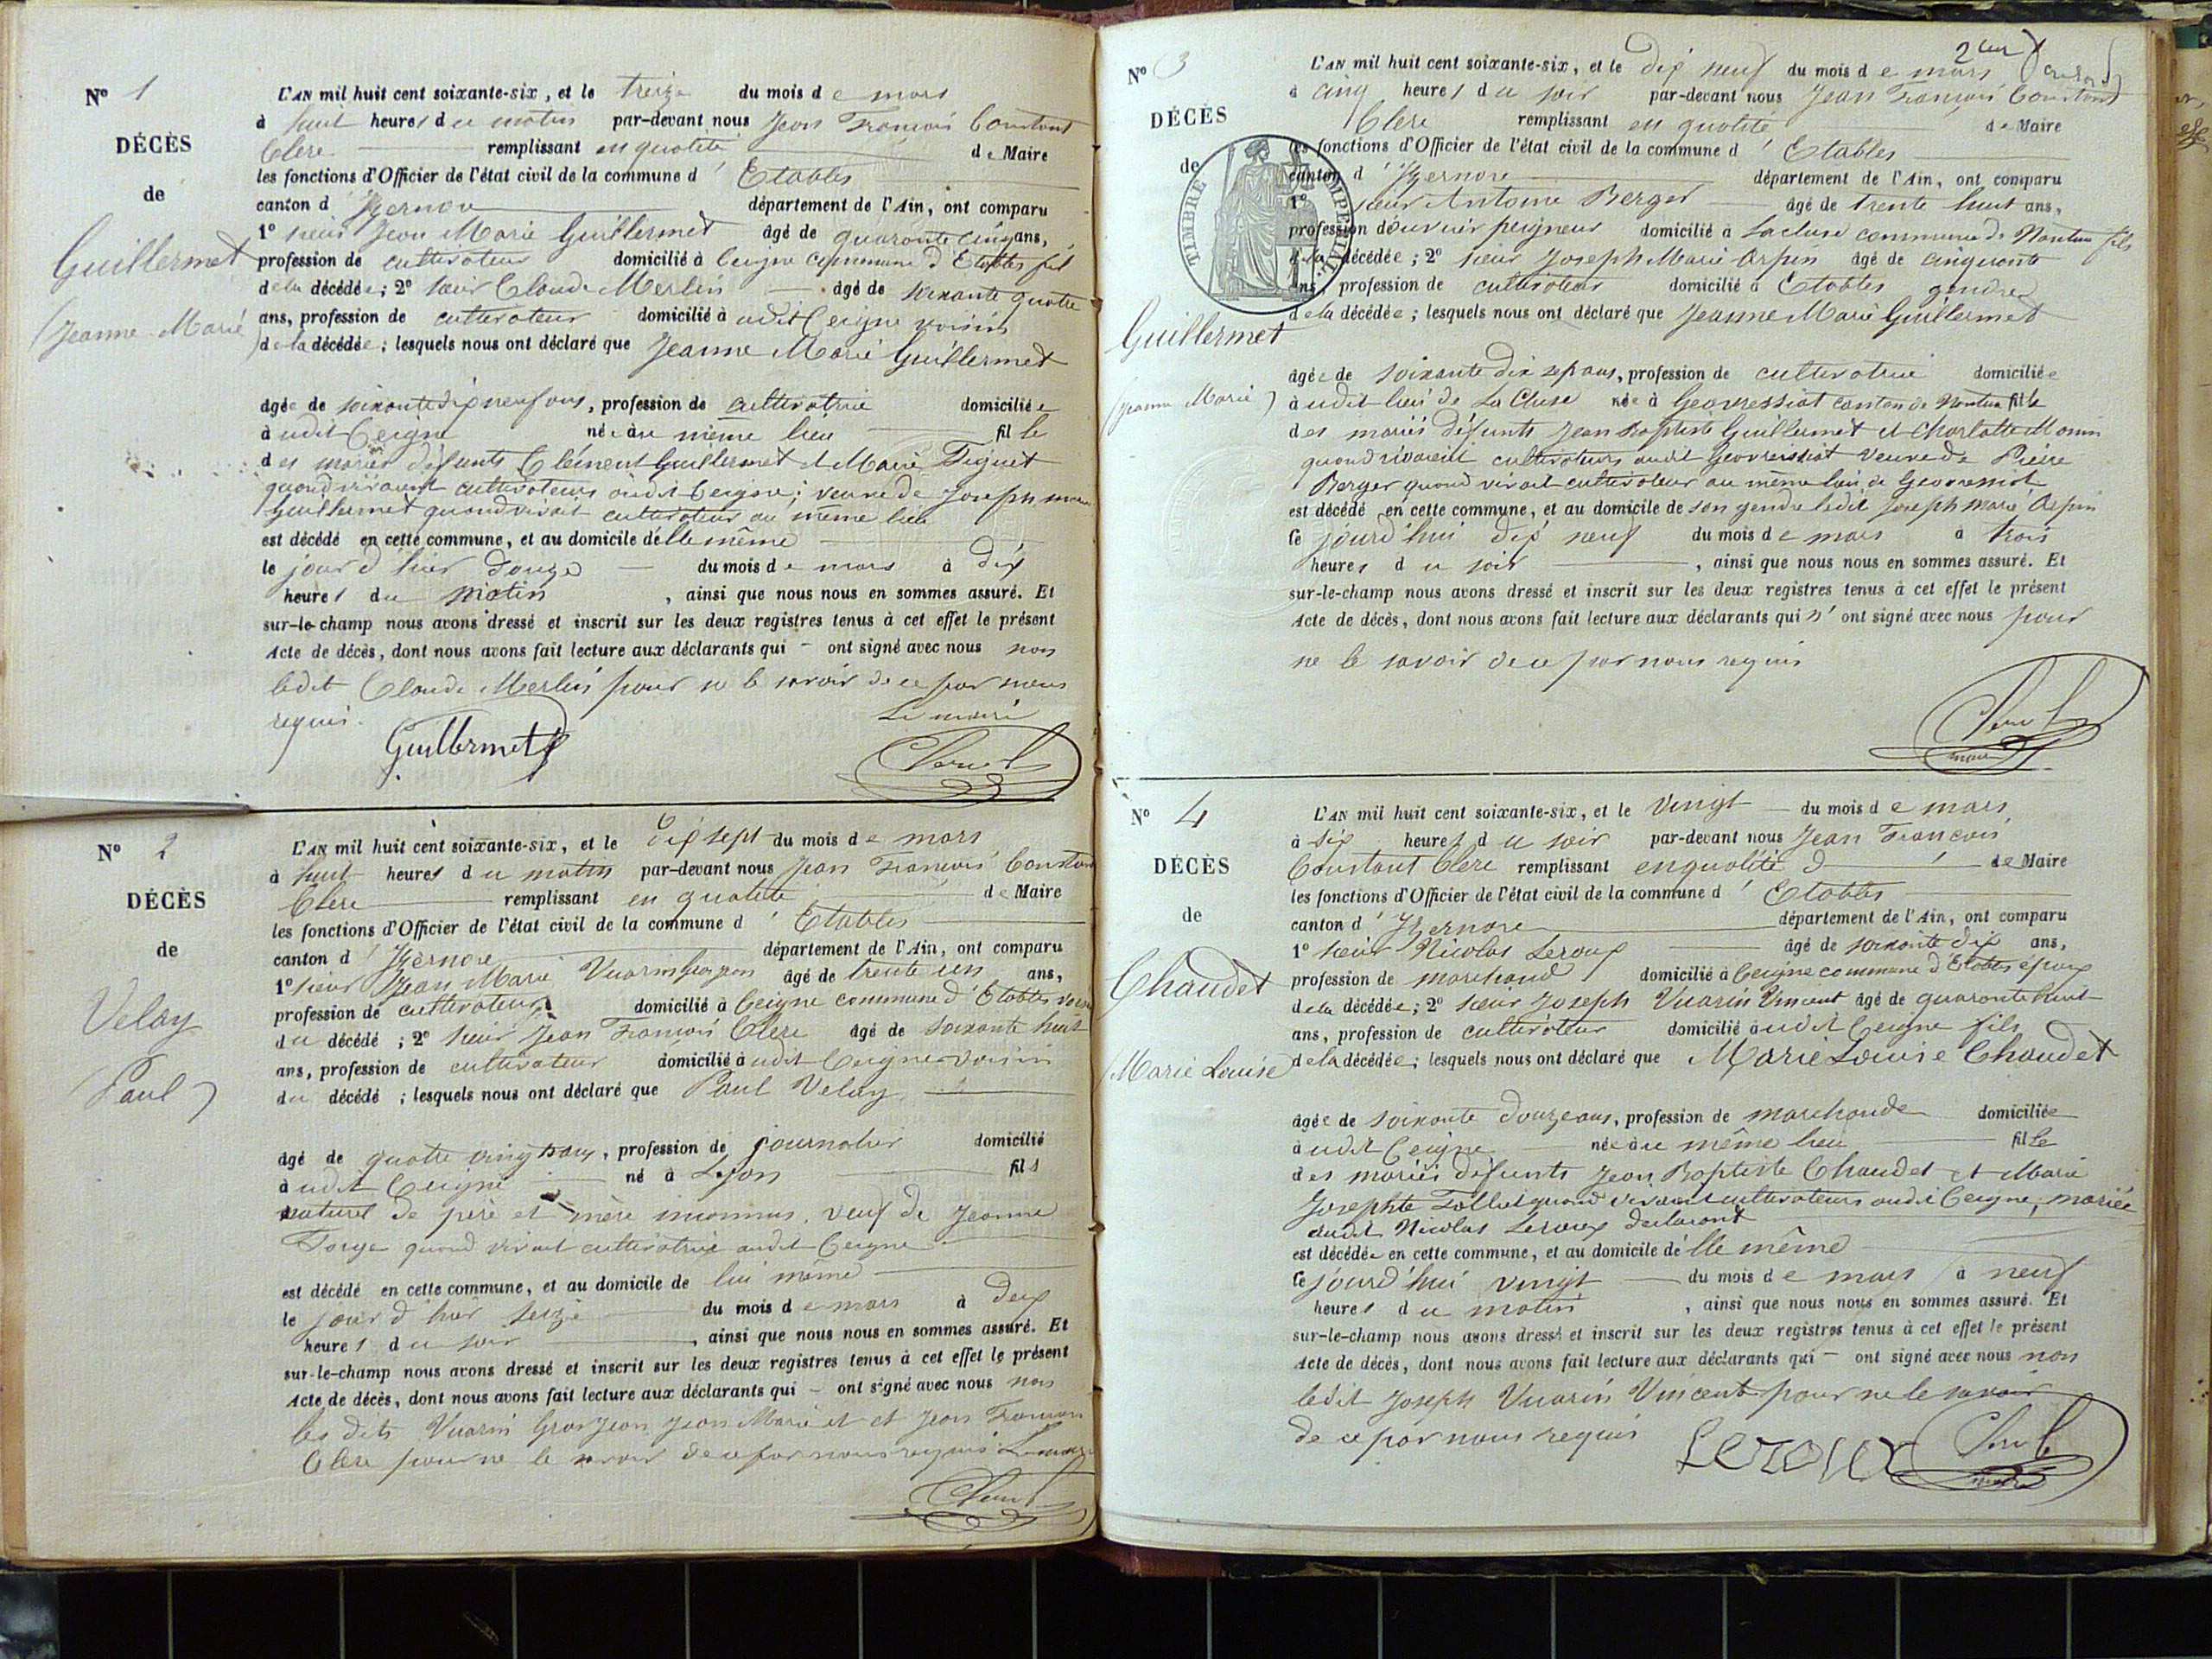 N° 1
DÉCÈS
de
Guillermet
(Jeanne Marie)
L'AN mil huit cent soixante-six, et le treize du mois de mars
à huit heures du matin par-devant nous Jean François Constant
Clerc remplissant en qualité de Maire
les fonctions d'Officier de l'état civil de la commune d'Etables
canton d'Izernore département de l'Ain, ont comparu
1° sieur Jean Marie Guillermet âgé de quarante cinq ans,
profession de cultivateur domicilié à Ceigne commune d'Etables fils
de la décédée; 2° sieur Claude Merlin âgé de soixante quatre
ans, profession de cultivateur domicilié à udit Ceigne voisin
de la décédée; lesquels nous ont déclaré que Jeanne Marie Guillermet
âgée de soixante dix neuf ans, profession de cultivatrice domiciliée
à udit Ceigne née au même lieu fille
des mariés défunts Clément Guillermet et Marie
quand vivaient cultivateurs audit Ceigne; veuve de Joseph marie
Guillermet quand vivait cultivateur au même lieu
est décédé en cette commune, et au domicile d'elle même
le jour d'hier douze du mois de mars à dix
heures du matin, ainsi que nous nous en sommes assuré. Et
sur-le-champ nous avons dressé et inscrit sur les deux registres tenus à cet effet le présent
Acte de décès, dont nous avons fait lecture aux déclarants qui – ont signé avec nous non
ledit Claude Merlin pour ne le savoir de ce par nous
requis. Le maire
Guillermet Clerc
N° 2
DÉCÈS
de
Velay
(Paul)
L'AN mil huit cent soixante-six, et le dix sept du mois de mars
à huit heures du matin par-devant nous Jean François Constant
Clerc remplissant en qualité de Maire
les fonctions d'Officier de l'état civil de la commune d'Etables
canton d'Izernore département de l'Ain, ont comparu
1° sieur Jean Marie Vuarin Grosjean âgé de trente un ans,
profession de cultivateur domicilié à Ceigne commune d'Etables voisin
du décédé; 2° sieur Jean François Clerc âgé de soixante huit
ans, profession de cultivateur domicilié à udit Ceigne voisin
du décédé; lesquels nous ont déclaré que Paul Velay
âgé de quatre vingt ans, profession de journalier domicilié
à udit Ceigne né à Lyon fils
naturel de père et mère inconnus, veuf de Jeanne
quand vivait cultivatrice audit Ceigne
est décédé en cette commune, et au domicile de lui même
le jour d'hier seize du mois de mars à deux
heures du soir, ainsi que nous nous en sommes assuré. Et
sur-le-champ nous avons dressé et inscrit sur les deux registres tenus à cet effet le présent
Acte de décès, dont nous avons fait lecture aux déclarants qui – ont signé avec nous non
les dits Vuarin Grosjean Jean Marie et et Jean François
Clerc pour ne le savoir de ce par nous requis Le maire
Clerc
N° 3
DÉCÈS
de
Guillermet
(Jeanne Marie)
TIMBRE IMPERIAL
L'AN mil huit cent soixante-six, et le dix neuf du mois de mars
à cinq heures du soir par-devant nous Jean François Constant
Clerc remplissant en qualité de Maire
les fonctions d'Officier de l'état civil de la commune d'Etables
canton d'Izernore département de l'Ain, ont comparu
1° sieur Antoine Berger âgé de trente huit ans,
profession d'ouvrier peigneur domicilié à Lacluse commune de Nantua fils
de la décédée; 2° sieur Joseph Marie Arpin âgé de cinquante
ans, profession de cultivateur domicilié à Etables gendre
de la décédée; lesquels nous ont déclaré que Jeanne Marie Guillermet
âgée de soixante dix sept ans, profession de cultivatrice domiciliée
à udit lieu de La Cluse née à Geovressiat canton de Nantua fille
des mariés défunts Jean Baptiste Guillermet et Charlotte Monin
quand vivaient cultivateurs audit Geovressiat veuve de Pierre
Berger quand vivait cultivateur au même lieu de Geovressiat
est décédé en cette commune, et au domicile de son gendre ledit Joseph Marie Arpin
le jourd'hui dix neuf du mois de mars à trois
heures du soir, ainsi que nous nous en sommes assuré. Et
sur-le-champ nous avons dressé et inscrit sur les deux registres tenus à cet effet le présent
Acte de décès, dont nous avons fait lecture aux déclarants qui n'ont signé avec nous pour
ne le savoir de ce par nous requis
Clerc
maire
N° 4
DÉCÈS
de
Chaudet
(Marie Louise
L'AN mil huit cent soixante-six, et le vingt du mois de mars
à six heures du soir par-devant nous Jean François
Constant Clerc remplissant en qualité d de Maire
les fonctions d'Officier de l'état civil de la commune d'Etables
canton d'Izernore département de l'Ain, ont comparu
1° sieur Nicolas Leroux âgé de soixante dix ans,
profession de marchand domicilié à Ceigne commune d'Etables époux
de la décédée; 2° sieur Joseph Vuarin Vincent âgé de quarante huit
ans, profession de cultivateur domicilié à udit Ceigne fils
de la décédée; lesquels nous ont déclaré que Marie Louise Chaudet
âgée de soixante douze ans, profession de marchande domiciliée
à udit Ceigne née au même lieu fille
des mariés défunts Jean Baptiste Chaudet et Marie
Josephte quand vivaient cultivateurs audit Ceigne, mariée
audit Nicolas Leroux déclarant
est décédée en cette commune, et au domicile d'elle même
le jourd'hui vingt du mois de mars à neuf
heures du matin, ainsi que nous nous en sommes assuré. Et
sur-le-champ nous avons dressé et inscrit sur les deux registres tenus à cet effet le présent
Acte de décès, dont nous avons fait lecture aux déclarants qui – ont signé avec nous non
ledit Joseph Vuarin Vincent pour ne le savoir
de ce par nous requis
Leroux Clerc
maire